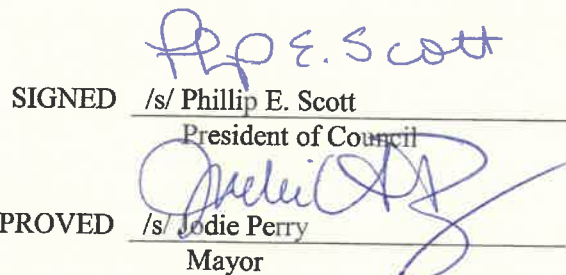 Phillip E. Scott
SIGNED /s/ Phillip E. Scott
President of Council
PROVED /s/ Jodie Perry
Mayor